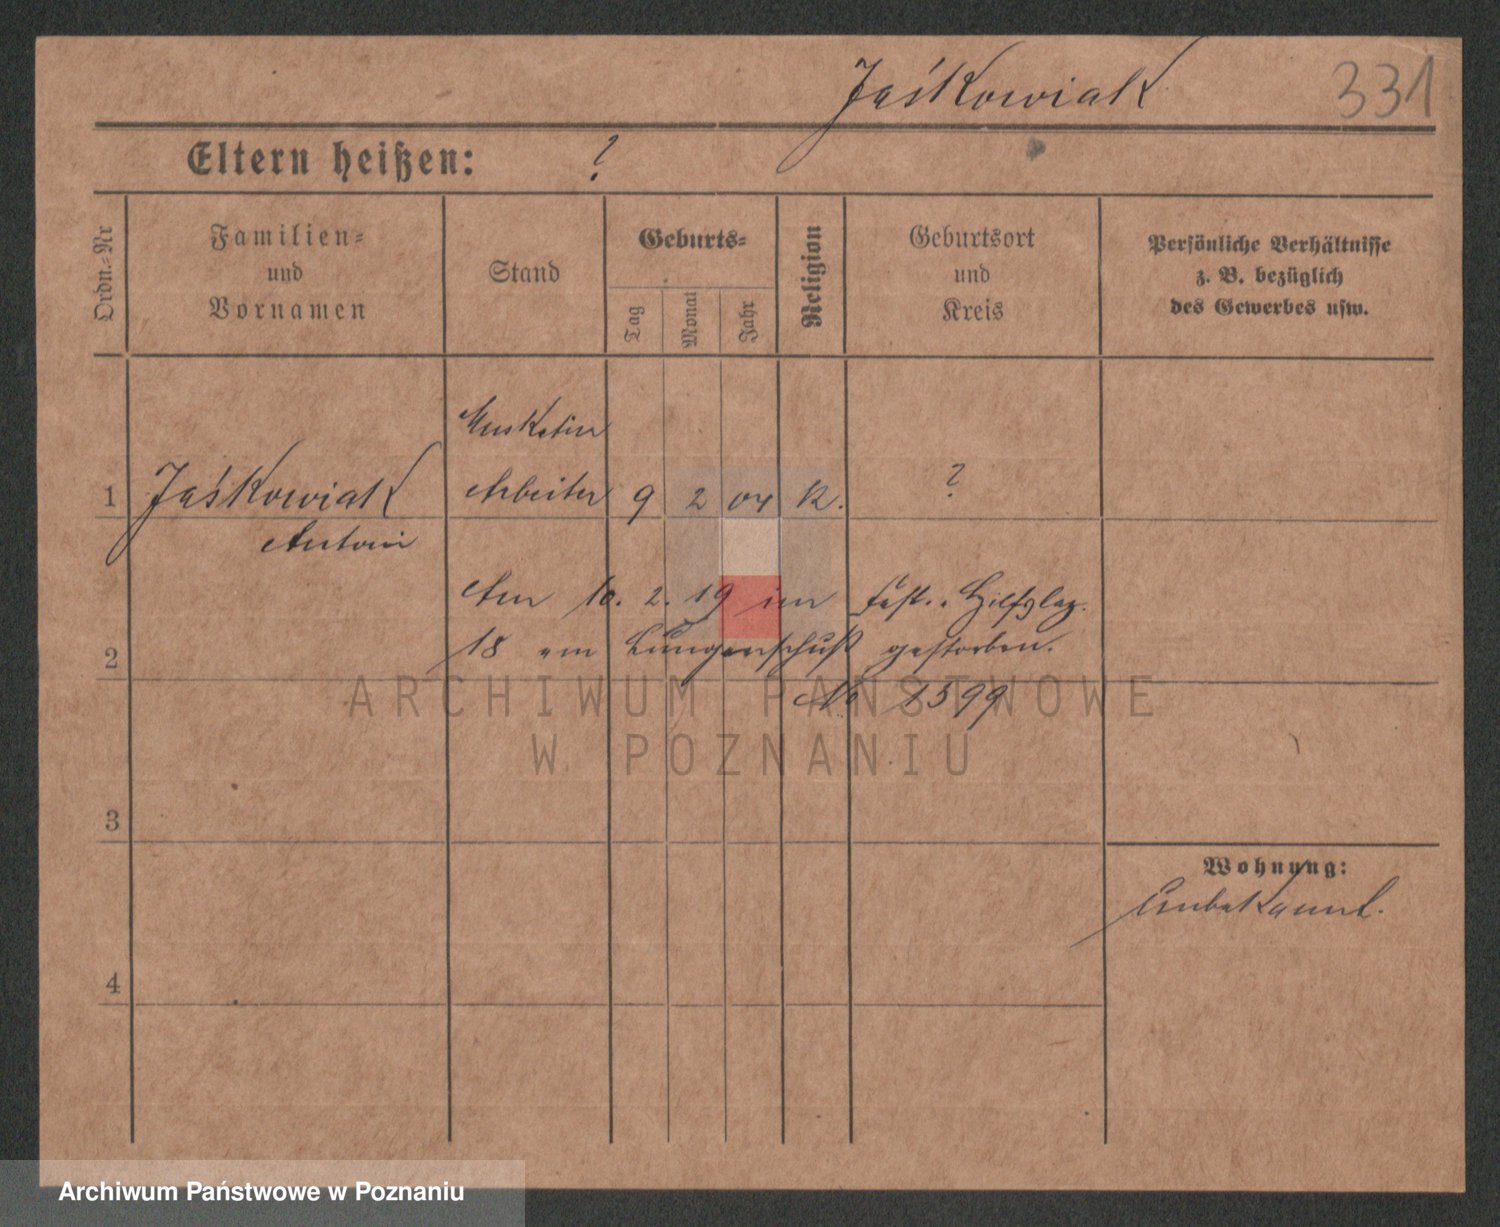 Jaśkowiak 331
Eltern heißen: ?
Ordn.-Nr
Familien-
und
Vornamen
Stand
Geburts-
Tag
Monat
Jahr
Religion
Geburtsort
und
Kreis
Persönliche Verhältnisse
z. B. bezüglich
des Gewerbes usw.
Musketier
1 Jaśkowiak Arbeiter 9 2 04 K. ?
Antoni
Am 10. 2. 19 im Fest. Hilfslaz.
2 18 am Lungenschuß gestorben.
No 1599
ARCHIWUM PAŃSTWOWE
W POZNANIU
3
Wohnung:
Unbekannt.
4
Archiwum Państwowe w Poznaniu